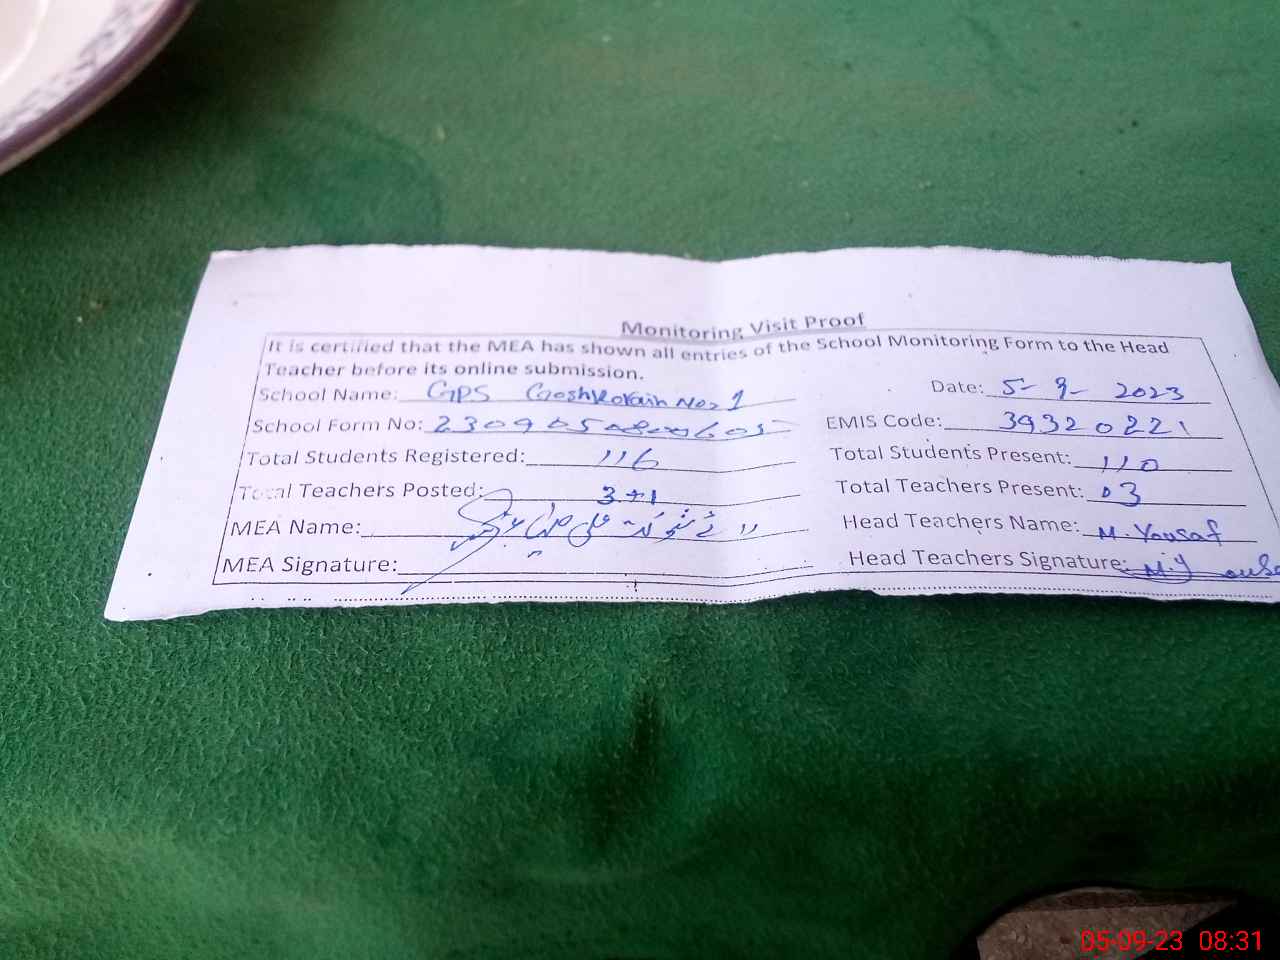 Monitoring Visit Proof
It is certified that the MEA has shown all entries of the School Monitoring Form to the Head
Teacher before its online submission.
School Name: GPS Goshkorain No. 1 Date: 5-9-2023
School Form No: EMIS Code: 39320221
Total Students Registered: 116 Total Students Present: 110
Total Teachers Posted: 3+1 Total Teachers Present: 03
MEA Name: Head Teachers Name: M. Yousaf
MEA Signature: Head Teachers Signature: M.Y
05-09-23 08:31